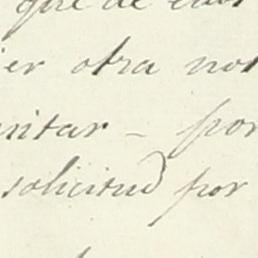 que de
ier otra not
nitar - por
solicitud por